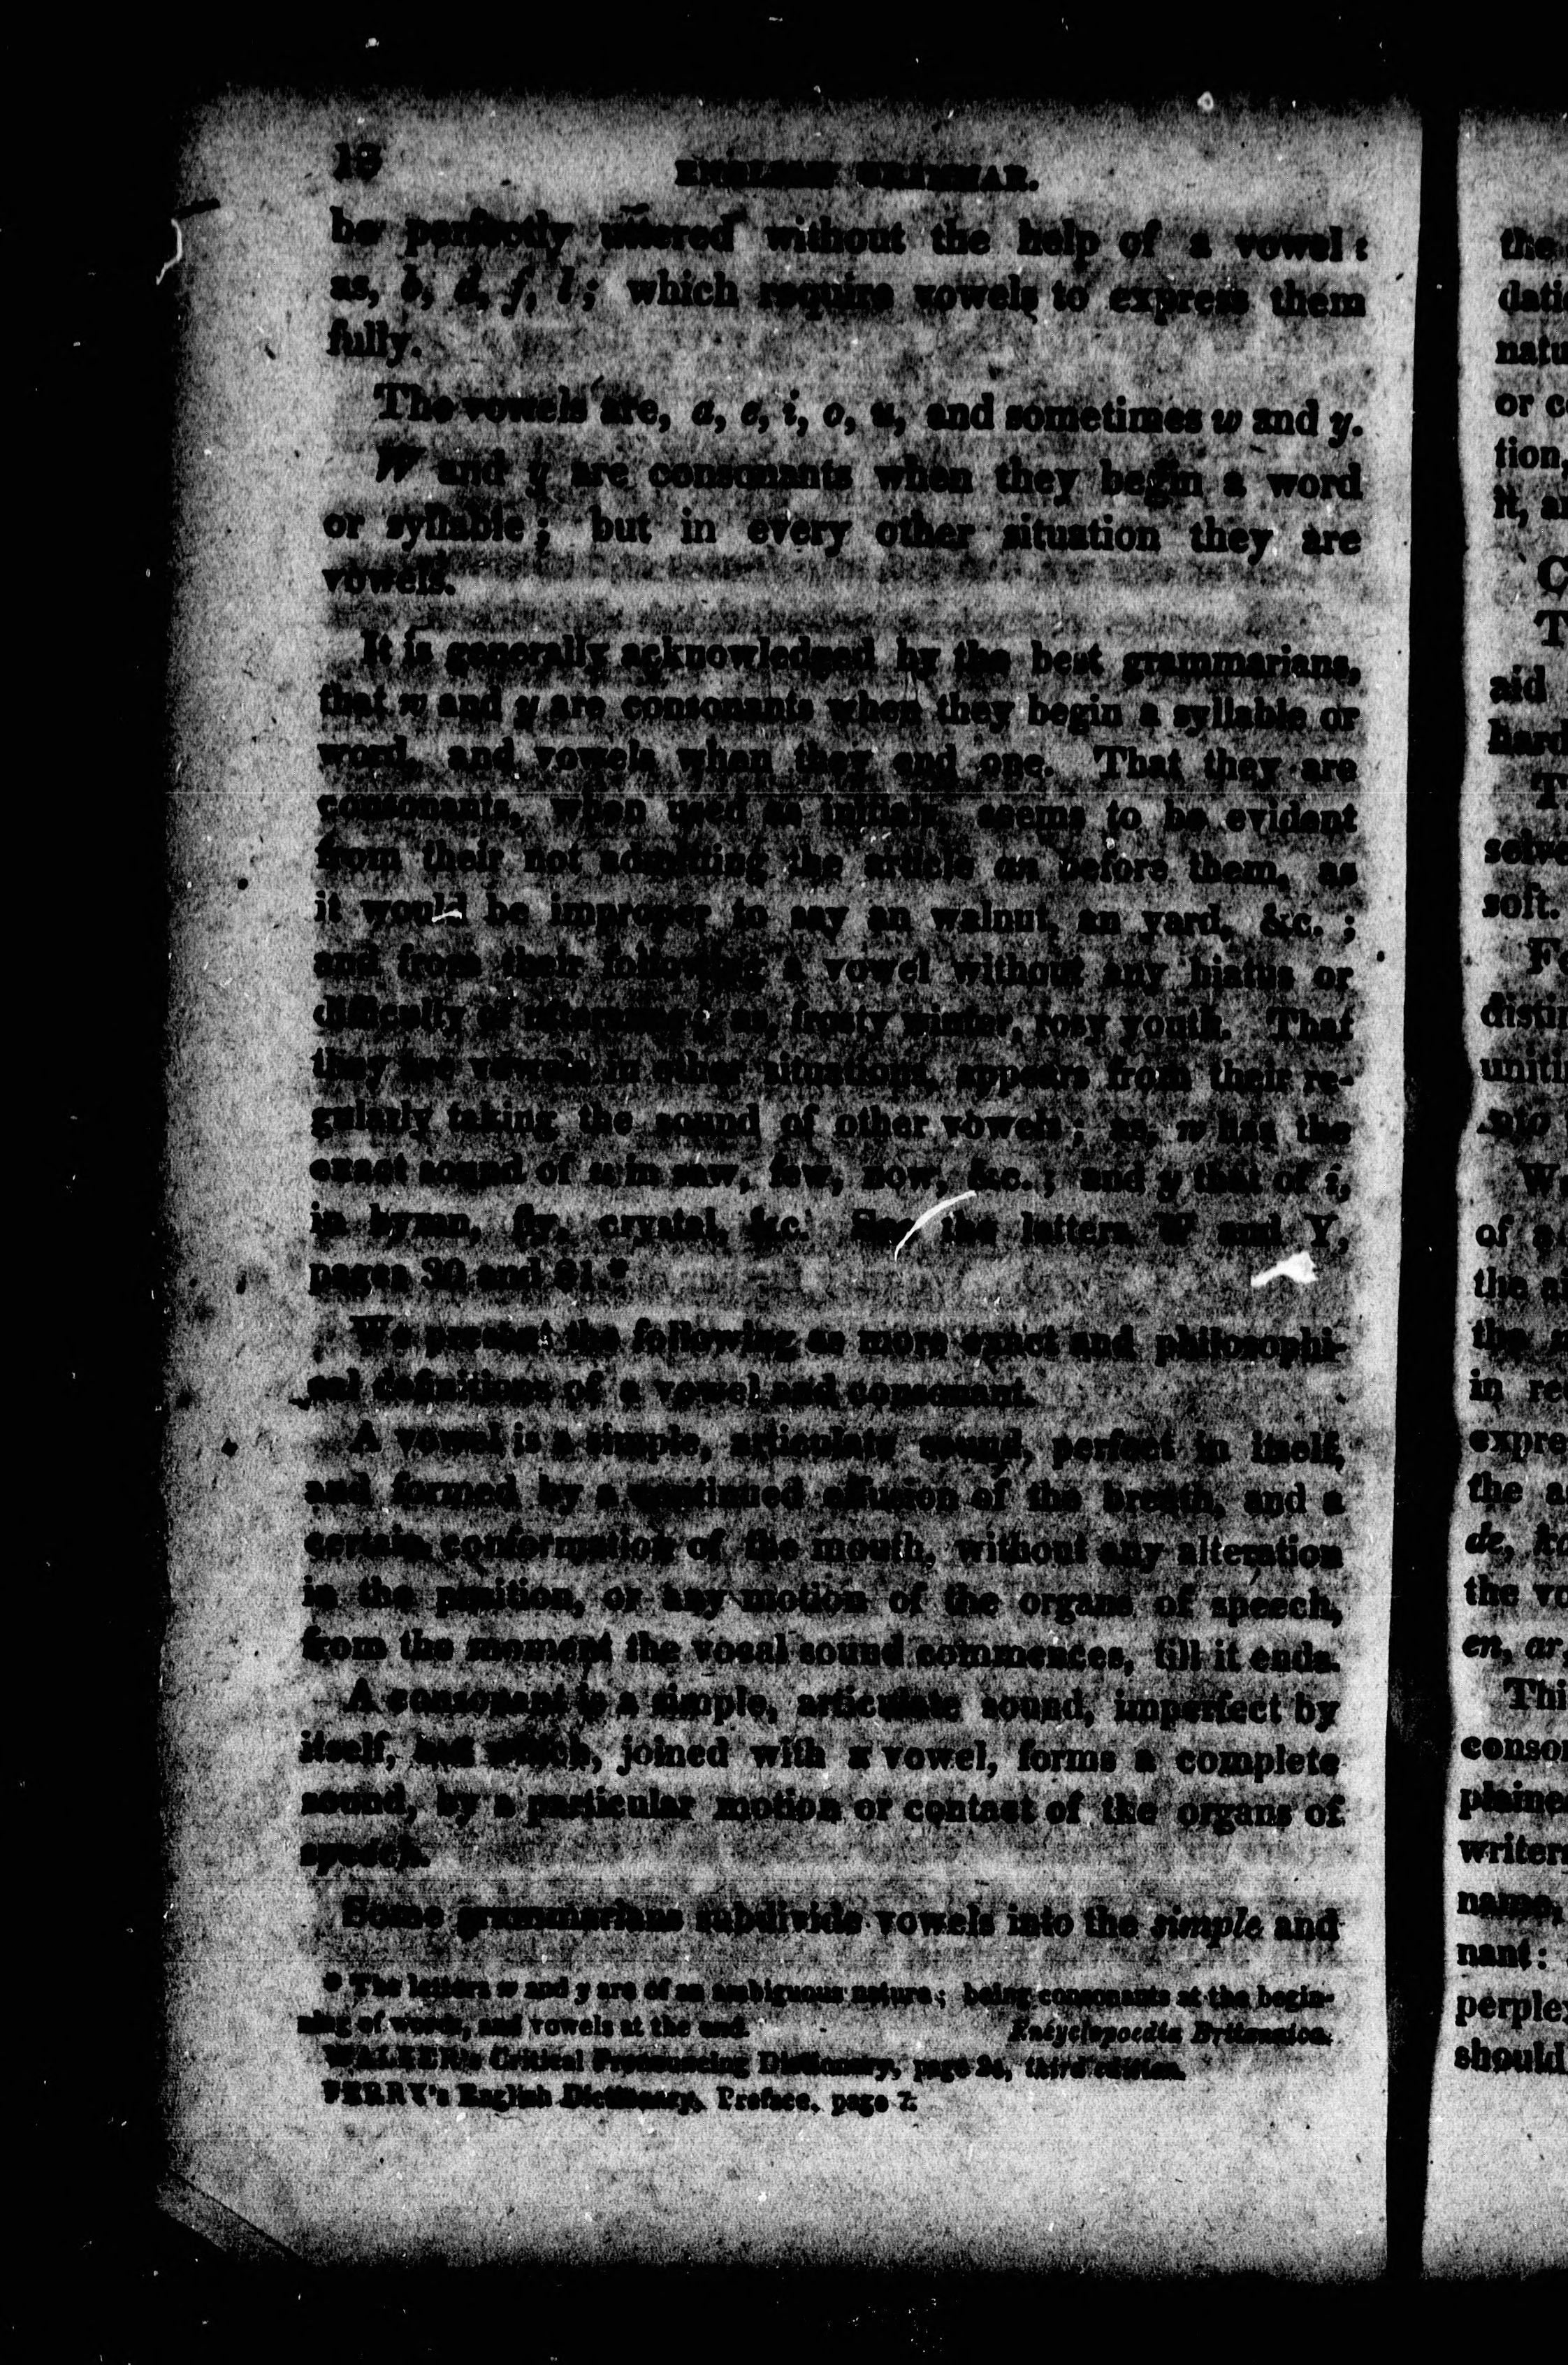 18
ENGLISH GRAMMAR.
be perfectly uttered without the help of a vowel:
as, b, d, f, l; which require vowels to express them
fully.
The vowels are, a, e, i, o, u, and sometimes w and y.
W and y are consonants when they begin a word
or syllable; but in every other situation they are
vowels.
It is generally acknowledged by the best grammarians,
that w and y are consonants when they begin a syllable or
word, and vowels when they end one. That they are
consonants, when used as initials, seems to be evident
from their not admitting the article an before them, as
it would be improper to say an walnut, an yard, &c. ;
and from their following a vowel without any hiatus or
difficulty of utterance; as, frosty winter, rosy youth. That
they are vowels in other situations, appears from their re-
gularly taking the sound of other vowels; as, w has the
exact sound of u in saw, few, now, &c.; and y that of i,
in hymn, fly, crystal, &c. See the letters W and Y,
pages 30 and 31.*
We present the following as more exact and philosophi-
cal definitions of a vowel and consonant.
A vowel is a simple, articulate sound, perfect in itself,
and formed by a continued effusion of the breath, and a
certain conformation of the mouth, without any alteration
in the position, or any motion of the organs of speech,
from the moment the vocal sound commences, till it ends.
A consonant is a simple, articulate sound, imperfect by
itself, but which, joined with a vowel, forms a complete
sound, by a particular motion or contact of the organs of
speech.
Some grammarians subdivide vowels into the simple and
* The letters w and y are of an ambiguous nature; being consonants at the begin-
ning of words, and vowels at the end. Encyclopoedia Britannica.
WALKER's Critical Pronouncing Dictionary, page 24, third edition.
PERRY's English Dictionary, Preface, page 7.